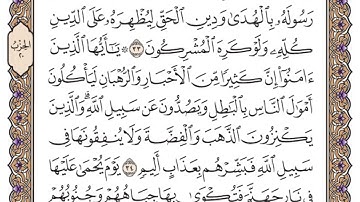 رَسُولَهُۥ بِٱلْهُدَىٰ وَدِينِ ٱلْحَقِّ لِيُظْهِرَهُۥ عَلَى ٱلدِّينِ
كُلِّهِۦ وَلَوْ كَرِهَ ٱلْمُشْرِكُونَ ٣٣ ۞ يَـٰٓأَيُّهَا ٱلَّذِينَ
ءَامَنُوٓا۟ إِنَّ كَثِيرًا مِّنَ ٱلْأَحْبَارِ وَٱلرُّهْبَانِ لَيَأْكُلُونَ
أَمْوَٰلَ ٱلنَّاسِ بِٱلْبَـٰطِلِ وَيَصُدُّونَ عَن سَبِيلِ ٱللَّهِ ۗ وَٱلَّذِينَ
يَكْنِزُونَ ٱلذَّهَبَ وَٱلْفِضَّةَ وَلَا يُنفِقُونَهَا فِى
سَبِيلِ ٱللَّهِ فَبَشِّرْهُم بِعَذَابٍ أَلِيمٍ ٣٤ يَوْمَ يُحْمَىٰ عَلَيْهَا
فِى نَارِ جَهَنَّمَ فَتُكْوَىٰ بِهَا جِبَاهُهُمْ وَجُنُوبُهُمْ
الحزب
٢٠